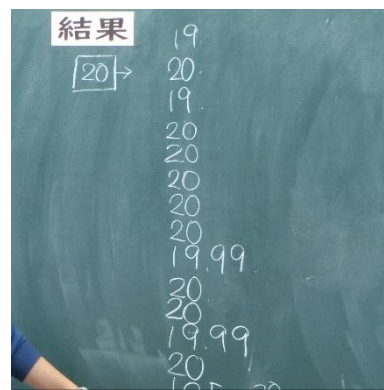 結果
19.
20 → 20.
19.
20
20
20
20
20
19.99
20
20
19.99
20